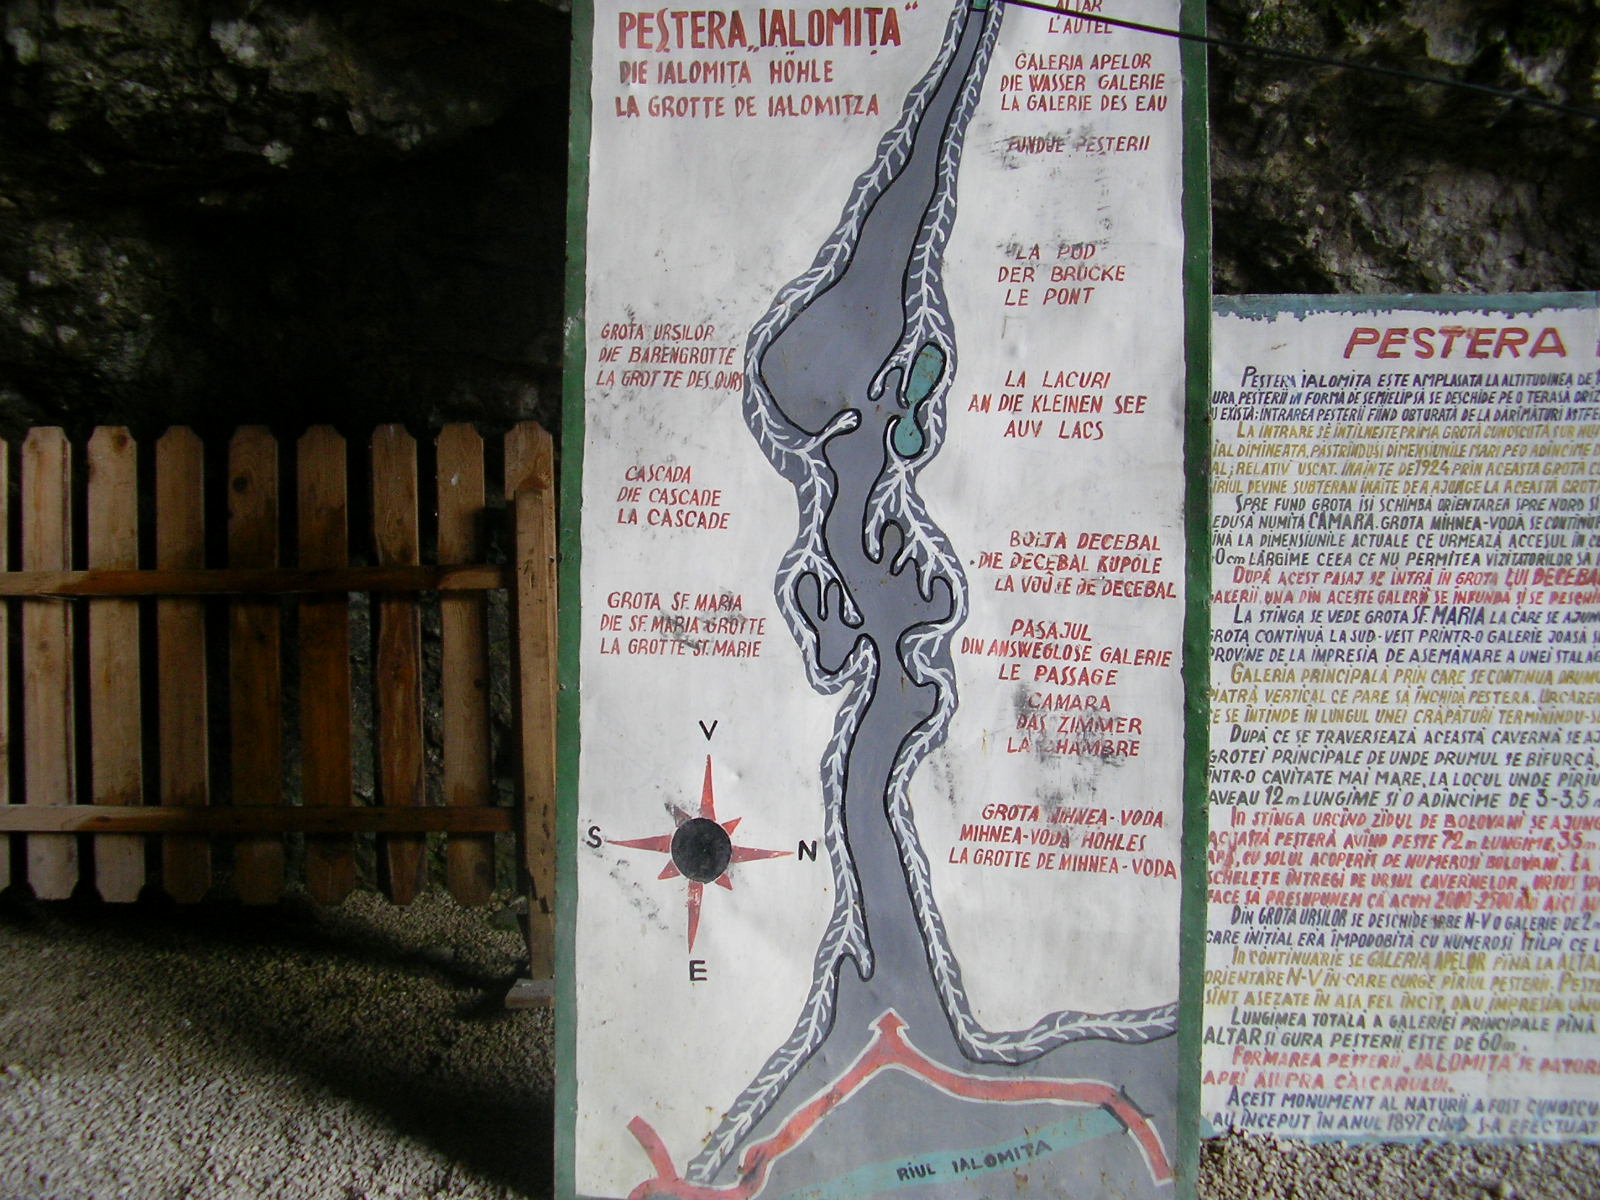 PEȘTERA „IALOMIȚA"
DIE IALOMIȚA HÖHLE
LA GROTTE DE IALOMITZA
ALTAR
L'AUTEL
GALERIA APELOR
DIE WASSER GALERIE
LA GALERIE DES EAU
FUNDUL PESTERII
LA POD
DER BRÜCKE
LE PONT
GROTA URSILOR
DIE BÄRENGROTTE
LA GROTTE DES OURS
LA LACURI
AN DIE KLEINEN SEE
AUV LACS
CASCADA
DIE CASCADE
LA CASCADE
BOLTA DECEBAL
DIE DECEBAL KUPOLE
LA VOÛTE DE DECEBAL
GROTA SF. MARIA
DIE SF. MARIA GROTTE
LA GROTTE ST. MARIE
PASAJUL
DIN ANSWEGLOSE GALERIE
LE PASSAGE
CAMARA
DAS ZIMMER
LA CHAMBRE
V
S
N
E
GROTA MIHNEA-VODA
MIHNEA-VODA HÖHLES
LA GROTTE DE MIHNEA-VODA
RÎUL IALOMITA
PESTERA
PESTERA IALOMITA ESTE AMPLASATA LA ALTITUDINEA DE
URA PESTERII IN FORMA DE SEMIELIPSĂ SE DESCHIDE PE O TERASĂ
EXISTĂ; INTRAREA PESTERII FIIND OBTURATĂ DE LA DĂRÎMĂTURI
LA INTRARE SE INTILNESTE PRIMA GROTĂ CUNOSCUTĂ SUB
DIMINEATA, PĂSTRINDUSI DIMENSIUNILE MARI PE O ADINCIME
RELATIV USCAT. INAINTE DE 1924 PRIN ACEASTA GROTA
DEVINE SUBTERAN INAITE DE A AJUNGE LA ACEASTĂ
SPRE FUND GROTA ISI SCHIMBĂ ORIENTAREA SPRE NORD SI
NUMITĂ CĂMARA. GROTA MIHNEA-VODĂ SE
LA DIMENSIUNILE ACTUALE CE URMEAZĂ ACCESUL IN
LĂRGIME CEEA CE NU PERMITEA VIZITATORILOR SĂ
DUPĂ ACEST PASAJ SE INTRĂ IN GROTA LUI DECEBAL
GALERII. UNA DIN ACESTE GALERII SE INFUNDĂ SI SE
LA STÎNGA SE VEDE GROTA SF. MARIA LA CARE SE
GROTA CONTINUĂ LA SUD-VEST PRINTR-O GALERIE JOASĂ
PROVINE DE LA IMPRESIA DE ASEMĂNARE A UNEI
GALERIA PRINCIPALĂ PRIN CARE SE CONTINUA
PIATRĂ VERTICAL CE PARE SĂ ÎNCHIDĂ PESTERA.
CE SE ÎNTINDE ÎN LUNGUL UNEI CRĂPĂTURI
DUPĂ CE SE TRAVERSEAZĂ ACEASTĂ CAVERNĂ SE
GROTEI PRINCIPALE DE UNDE DRUMUL SE BIFURCĂ,
ÎNTR-O CAVITATE MAI MARE, LA LOCUL UNDE
AVEAU 12m LUNGIME SI O ADÎNCIME DE 3-3,5
ÎN STÎNGA URCÎND ZIDUL DE BOLOVANI SE
ACEASTĂ PESTERĂ AVÎND PESTE 72m LUNGIME, 35m
CU SOLUL ACOPERIT DE NUMEROSI BOLOVANI. LA
SCHELETE ÎNTREGI DE URSUL CAVERNELOR, URSUS
FACE SĂ PRESUPUNEM CĂ ACUM 2000-2500 ANI AICI
DIN GROTA URSILOR SE DESCHIDE SPRE N-V O GALERIE DE
CARE INITIAL ERA ÎMPODOBITĂ CU NUMEROSI STÎLPI CE
ÎN CONTINUARIE SE GALERIA APELOR PÎNĂ LA
ORIENTARE N-V ÎN CARE CURGE PÎRIUL PESTERII.
SÎNT ASEZATE ÎN ASA FEL ÎNCÎT, DAU IMPRESIA
LUNGIMEA TOTALĂ A GALERIEI PRINCIPALE PÎNĂ
ALTAR SI GURA PESTERII ESTE DE 60m.
FORMAREA PESTERII „IALOMITA" SE
APEI ASUPRA CALCARULUI.
ACEST MONUMENT AL NATURII A FOST
AU ÎNCEPUT ÎN ANUL 1897 CÎND S-A EFECTUAT